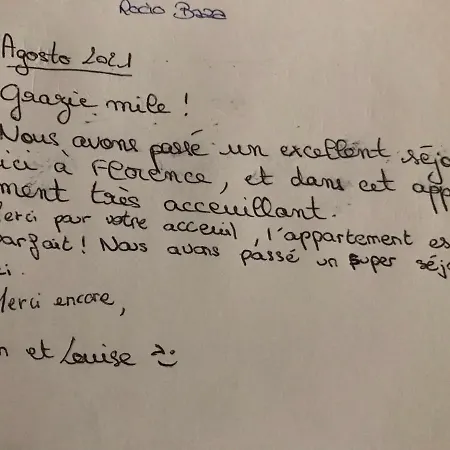 Rocio Baza
Agosto 2021
Grazie mile !
Nous avons passé un excellent séjo
ici à Florence, et dans cet app
ment très acceuillant.
Merci pour votre acceuil, l'appartement es
parfait ! Nous avons passé un super séj
ci.
Merci encore,
n et Louise :)